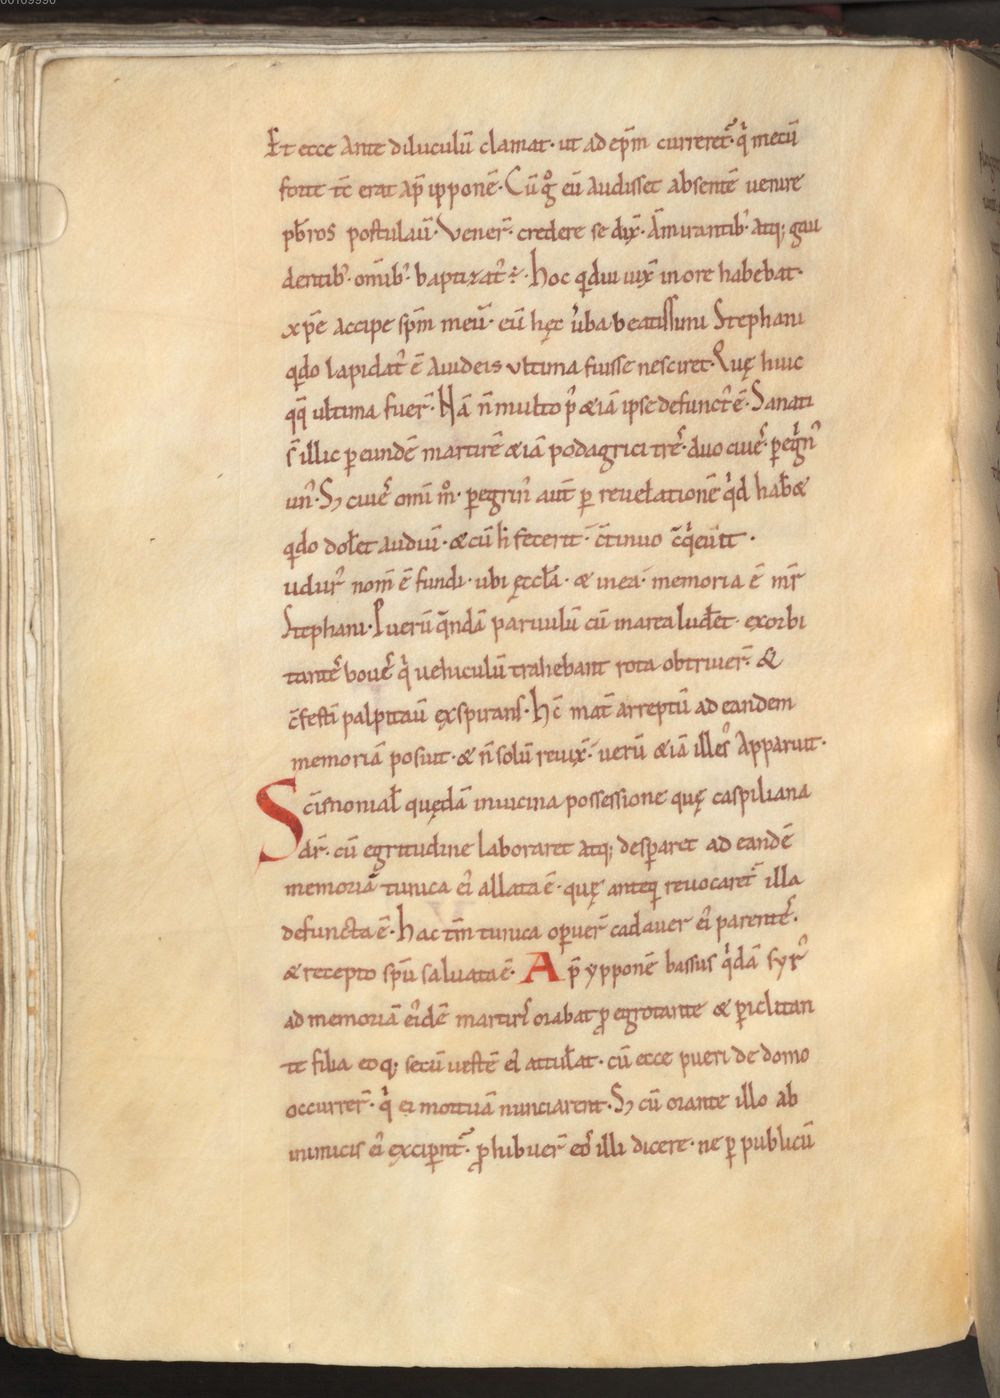 00109996
Et ecce ante diluculū clamat· ut ad ep̄m curreret̄· q̇ mecū
forte tc̄ erat ap̄ ipponē· Cū g̊ eū audisset absentē venire
pb̄ros postulauī· Vener̄· credere se dix̄· Āmirantib' atq; gau
dentib'· omīb'· baptizat'ē· hoc qdiu uix̄ in ore habebat·
xp̄e accipe sp̄m meū· cū hęc ůba beatissimi Stephani
qdo lapidat' ē a iudeis ultima fuisse nesciret· Quę huic
qq̄ ultima fuer̄· Nā n̄ multo p' & iā ipse defunct' ē· Sanati
s̄ illic p eundē martirē & iā podagrici tre̅s· duo ciue̅s· pegrin'
un'· S; ciue̅s omī m̊· pegrin' aut̄ p reuelationē q̇d hab&
qdo dolet audiuī· & cū h̄ fecerit c̄tinuo c̄q̇euit·
udur' nom̄ ē fundi· ubi ęccl̄a· & in ea memoria ē mr̄
Stephani· Puerū q̄ndā paruulū cū in area ludet· exorbi
tante̅s boue̅s q̇ uehiculū trahebant rota obtriuer̄· &
c̄festī palpitauī exspirans· hc̄ mat̄ arreptū ad eandem
memoriā posuit· & n̄ solū reuix̄· uerū & iā illes' apparuit·
Sc̄ismonial̄ quędā in uicina possessione quę caspiliana
dr̄· cū egritudine laboraret atq; desparet ad eandē
memoriā tunica ei' allata ē· quę anteq reuocaret̄ illa
defuncta ē· hac tm̄ tunica opuer̄ cadauer ei' parente̅s·
& recepto sp̄u saluata ē· Ap̄ ypponē bassus q̇dā syr'
ad memoriā ei'dē martiris orabat p egrotante & piclitan
te filia eoq; secū uestē ei' attulat· cū ecce pueri de domo
occurrer̄· q̇ ei mortuā nunciarent· S; cū orante illo ab
inimicis ei' exciperent̄· phibuer̄ eos illi dicere· ne p publicū